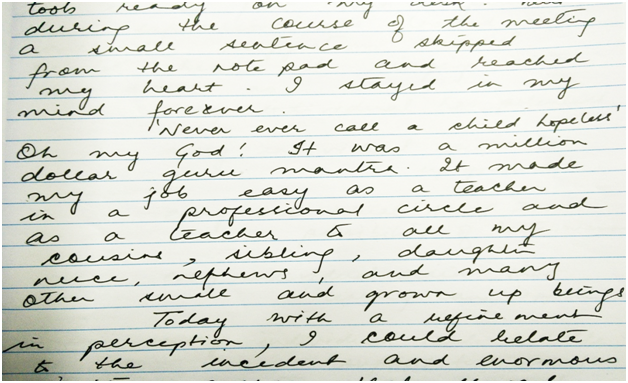 tools ready on my desk.
during the course of the meeting
a small sentence skipped
from the note pad and reached
my heart. I stayed in my
mind forever.
'Never ever call a child hopeless'
Oh my God! It was a million
dollar guru mantra. It made
my job easy as a teacher
in a professional circle and
as a teacher to all my
cousins, sibling, daughter
niece, nephews, and many
other small and grown up beings
Today with a refinement
in perception, I could relate
to the incident and enormous